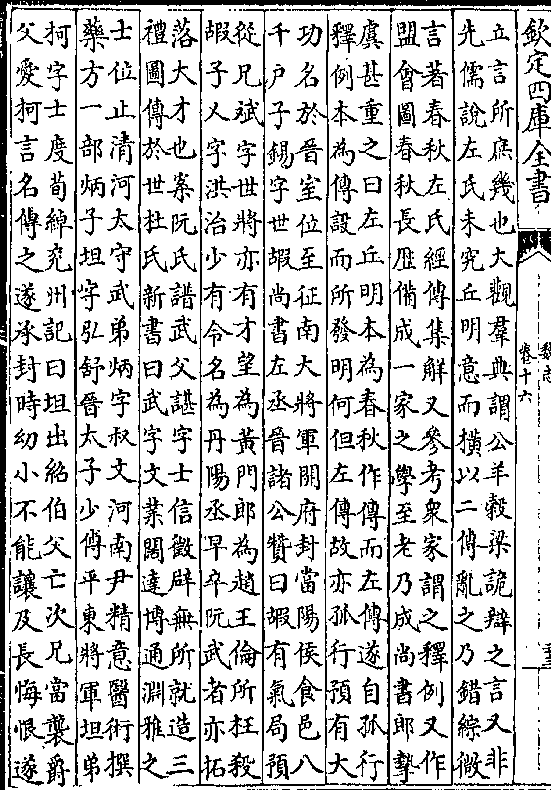 欽定四庫全書
魏志
卷十六
立言所庶幾也大觀羣典謂公羊穀梁詭辯之言又非
先儒說左氏未究丘明意而橫以二傳亂之乃錯綜微
言著春秋左氏經傳集解又參考衆家謂之釋例又作
盟會圖春秋長厯備成一家之學至老乃成尚書郎摯
虞甚重之曰左丘明本為春秋作傳而左傳遂自孤行
釋例本為傳設而所發明何但左傳故亦孤行預有大
功名於晉室位至征南大將軍開府封當陽侯食邑八
千户子錫字世嘏尚書左丞晉諸公贊曰嘏有氣局預
從兄斌字世將亦有才望為黃門郎為趙王倫所枉殺
嘏子乂字洪治少有令名為丹陽丞早卒阮武者亦拓
落大才也案阮氏譜武父諶字士信徵辟無所就造三
禮圖傳於世杜氏新書曰武字文業闊達博通淵雅之
士位止清河太守武弟炳字叔文河南尹精意醫術撰
藥方一部炳子坦字弘舒晉太子少傅平東將軍坦弟
柯字士度荀綽兖州記曰坦出紹伯父亡次兄當襲爵
父愛柯言名傳之遂承封時幼小不能讓及長悔恨遂